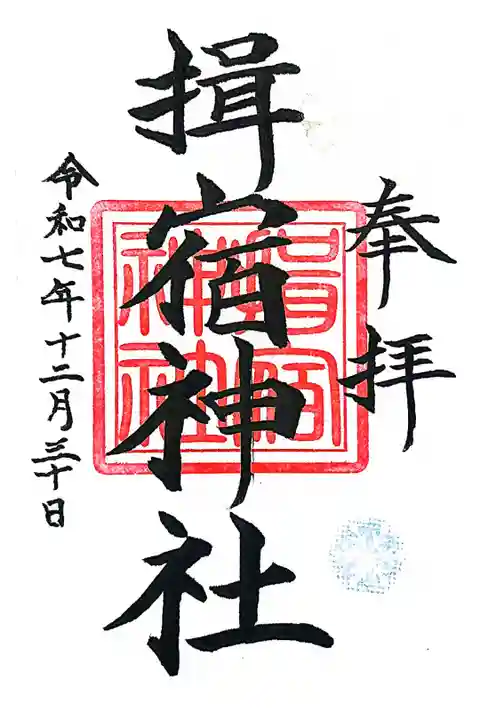 奉拝
揖宿神社
指宿
神社
令和七年十二月三十日